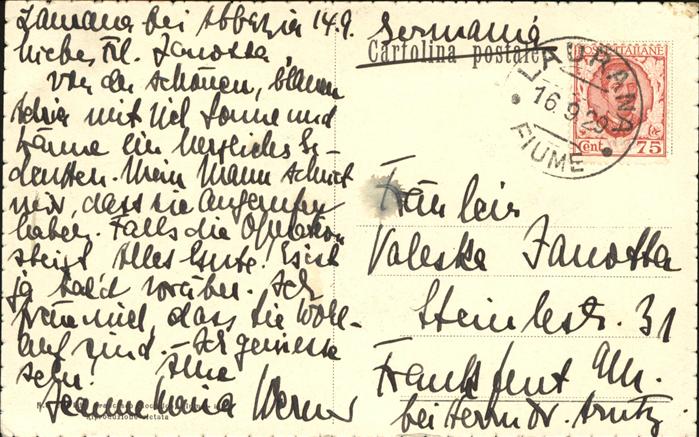 Laurana bei Abbazia 14.9.
Liebes Frl. Janotta,
Von der schönen, blauen
Adria mit viel Sonne und
Wärme ein herzliches Ge-
denken. Mein Mann schreibt
mir, dass Sie
haben. Falls die Operation
steigt Alles Gute! Es ist
ja bald vorüber. Ich
freu mich, dass Sie wohl-
auf sind. – Ich geniesse
sehr. Ihre
Werner
Germania
Cartolina postale
POSTE ITALIANE
Cent 75
LAURANA
16.9.29
FIUME
Fräulein
Valeska Janotta
Steinlestr. 31
Frankfurt a/M.
bei Herrn Dr.
Riproduzione vietata